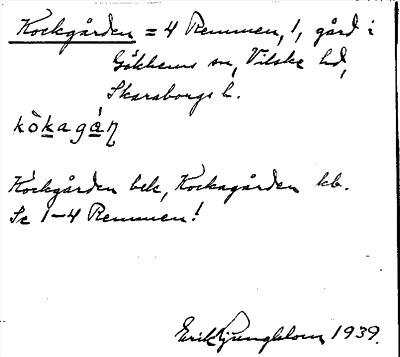 Kockgården = 4 Remmen, 1, gård i
Gökhems sn, Vilske hd,
Skaraborgs l.
kòkagáη
Kockgården bek, Kockagården kb.
Se 1–4 Remmen!
Erik Ljungblom 1939.